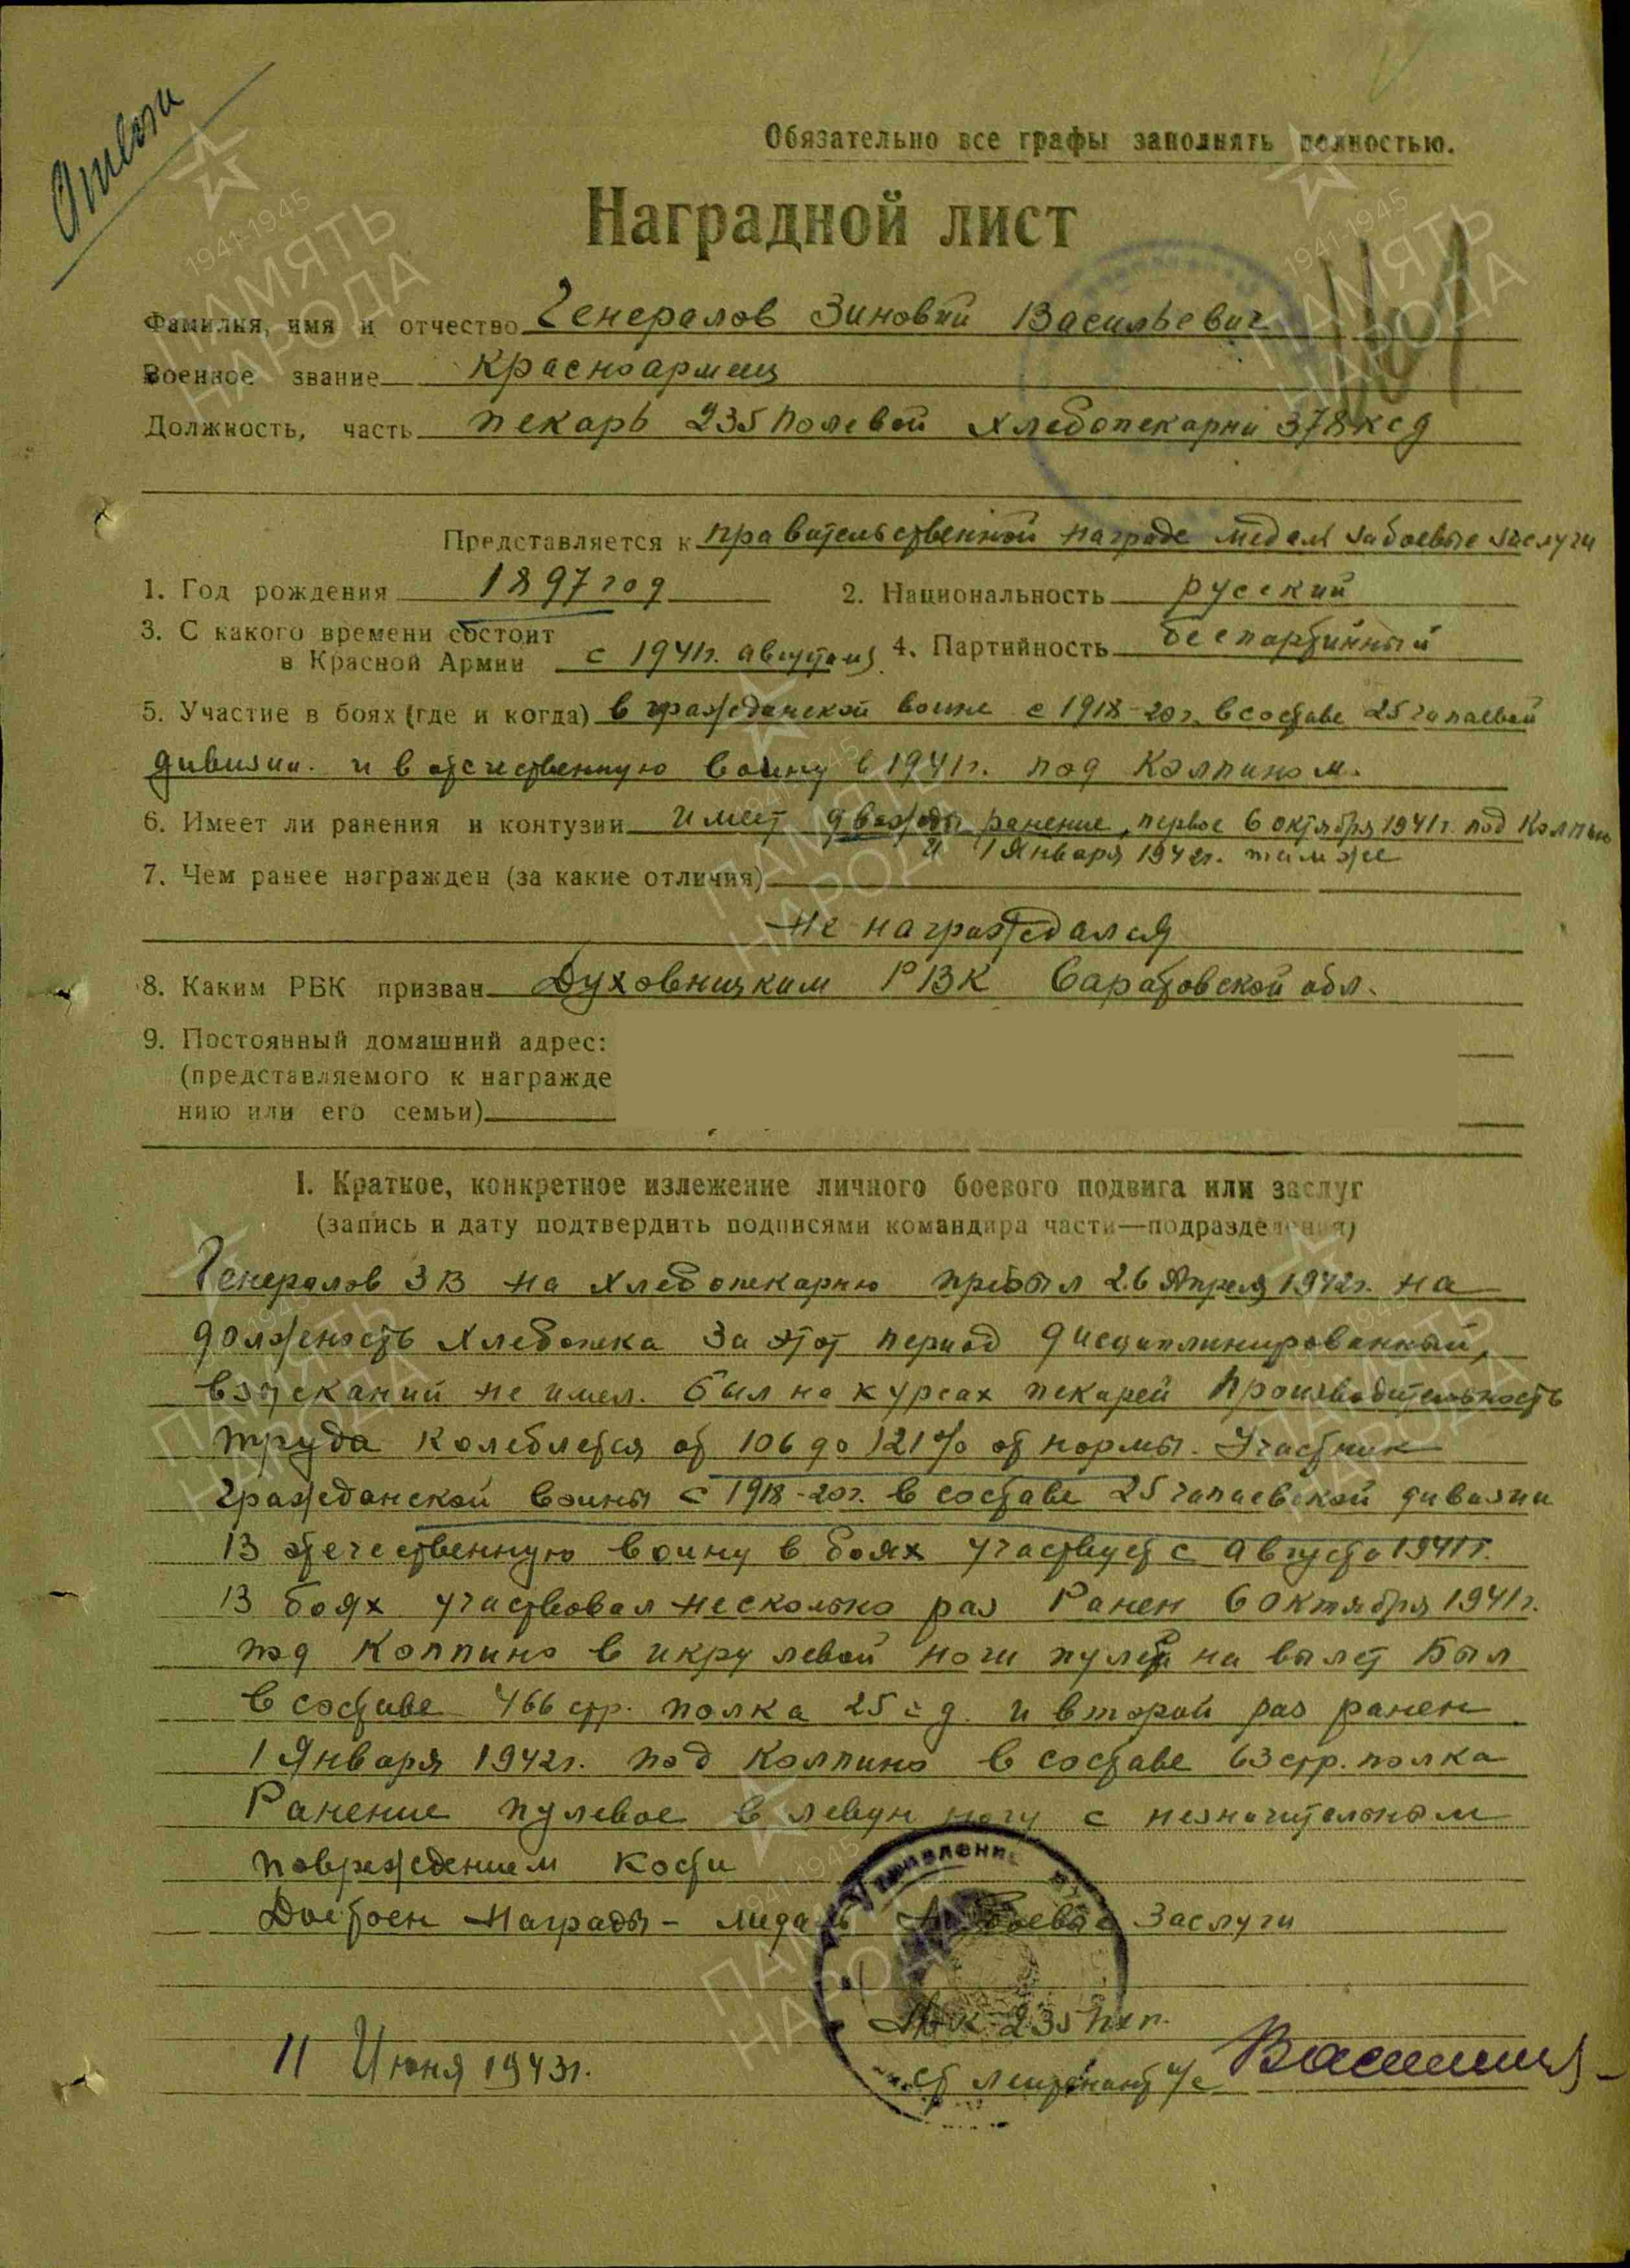 Отвага
Обязательно все графы заполнять полностью.
Наградной лист
Фамилия, имя и отчество Генералов Зиновий Васильевич
Военное звание Красноармеец
Должность, часть пекарь 235 полевой хлебопекарни 378 ксд
Представляется к правительственной награде медаль за боевые заслуги
1. Год рождения 1897 год 2. Национальность русский
3. С какого времени состоит в Красной Армии с 1941г. августа м) 4. Партийность беспартийный
5. Участие в боях (где и когда) в гражданской воине с 1918-20г. в составе 25 чапаевой
дивизии. и в отечественную воину в 1941г. под Колпином.
6. Имеет ли ранения и контузии имеет дважды ранение, первое 6 октября 1941г. под Колпин
и 1 Января 1942г. там же
7. Чем ранее награжден (за какие отличия)
не награждался
8. Каким РВК призван Духовницким РВК Саратовской обл.
9. Постоянный домашний адрес:
(представляемого к награжде
нию или его семьи)
I. Краткое, конкретное изложение личного боевого подвига или заслуг
(запись и дату подтвердить подписями командира части—подразделения)
Генералов З В на хлебопекарню прибыл 26 Апреля 1942г. на
должность хлебопека За этот период дисциплинированный,
взысканий не имел. Был на курсах пекарей Производительность
труда колеблется от 106 до 121% от нормы. Участник
гражданской воины с 1918-20г. в составе 25 чапаевской дивизии
В отечественную воину в боях участвует с августа 1941г.
В боях участвовал несколько раз Ранен 6 октября 1941г.
под Колпино в икру левой ноги пулей на вылет Был
в составе 466 стр. полка 25 сд. и второй раз ранен
1 Января 1942г. под Колпино в составе 63 стр. полка
Ранение пулевое в левую ногу с незначительным
повреждением кости
Достоен Награды - медаль За Боевые Заслуги
Управление
Нач 235 пхп.
11 Июня 1943г. ст лейтенант и/с
1941-1945
ПАМЯТЬ
НАРОДА